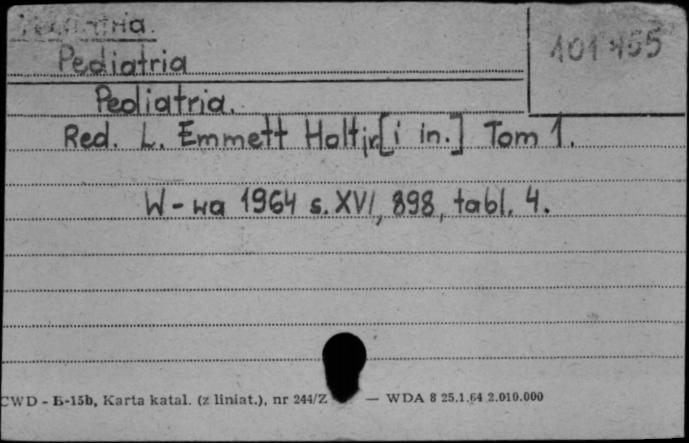 Pediatria
101455
Pediatria.
Red. L. Emmett Holt jr [i in.] Tom 1.
W-wa 1964 s. XVI, 898, tabl. 4.
CWD - Б-15b, Karta katal. (z liniat.), nr 244/Z — WDA 8 25.1.64 2.010.000